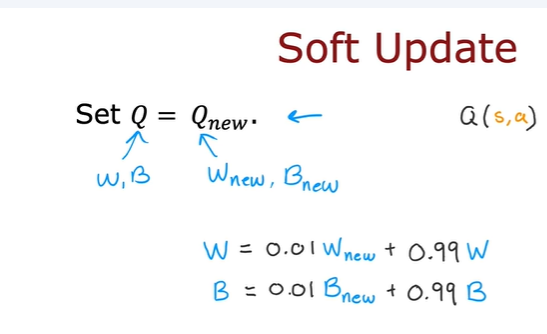 Soft Update
Set Q = Qnew. ← Q(s,a)
W,B Wnew, Bnew
W = 0.01 Wnew + 0.99 W
B = 0.01 Bnew + 0.99 B